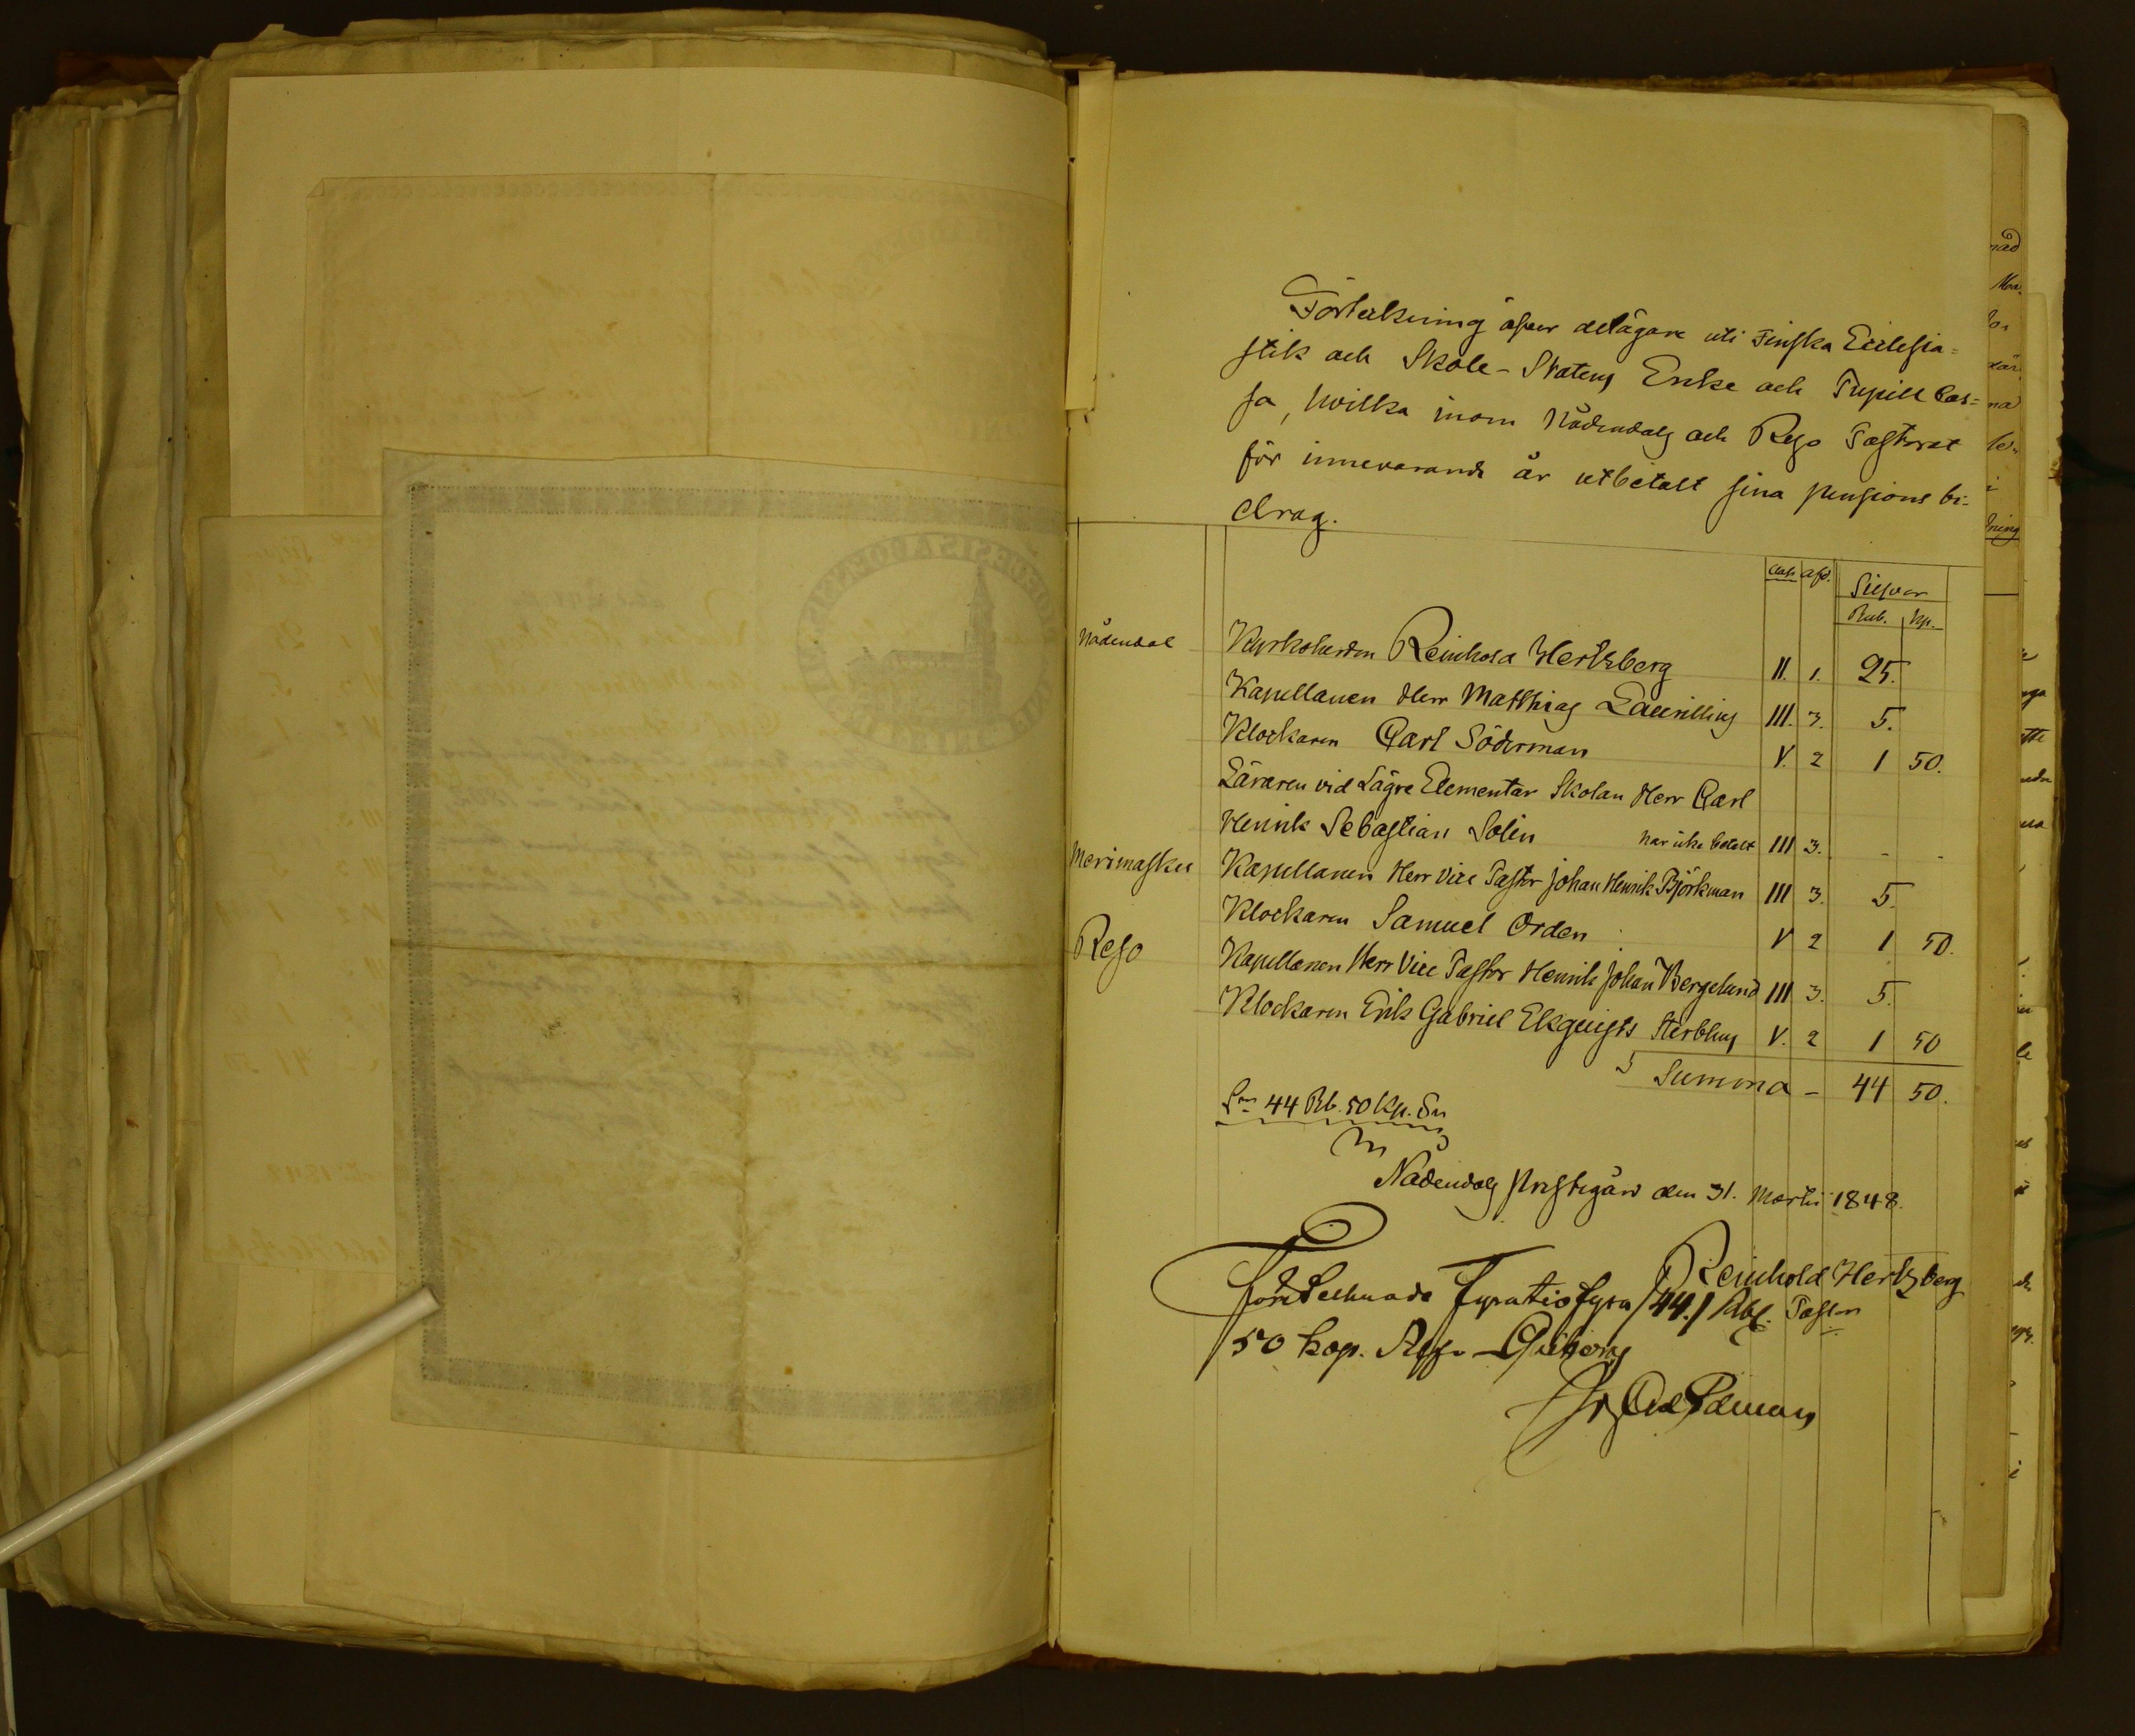 Förtekning öfver delägare uti Finska Ecclesia=
stik och Skole-Statens Enke och Pupill Cas=
sa, hvilka inom Nådendals och Reso Pastorat
för innevarande år utbetalt sina pensions bi-
drag.
Clas. afd. Silfver
Rub. Kp.
Nådendal Kyrkoherden Reinhold Hertzberg II. 1. 25.
Kapellanen Herr Matthias Laurellius III. 3. 5.
Klockaren Carl Söderman V. 2 1 50.
Läraren vid Lägre Elementar Skolan Herr Carl
Henrik Sebastian Solin har icke betalt III 3. - -
Merimasku Kapellanen Herr Vice Pastor Johan Henrik Björkman III 3. 5.
Klockaren Samuel Orden V 2 1 50.
Reso Kapellanen Herr Vice Pastor Henrik Johan Bergelund III 3. 5.
Klockaren Erik Gabriel Ekquists Sterbhus V. 2 1 50
Summa - 44 50.
44 Rb. 50 Kp. Sr
Nådendals Prestegård den 31. Martii 1848.
Reinhold Hertzberg
Pastor
Förestecknade Fyratiofyra /44./ Rbl.
50 kop. Silfr